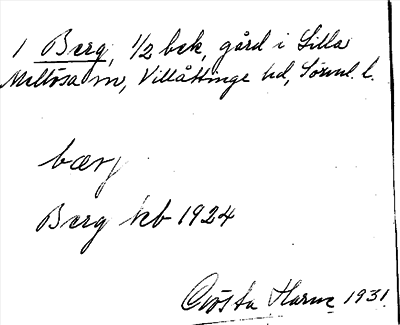 1 Berg, 1/2 bek, gård i Lilla
Mellösa sn, Villåttinge hd, Sörml. l.
bærj
Berg kb 1924
Gösta Harne 1931.